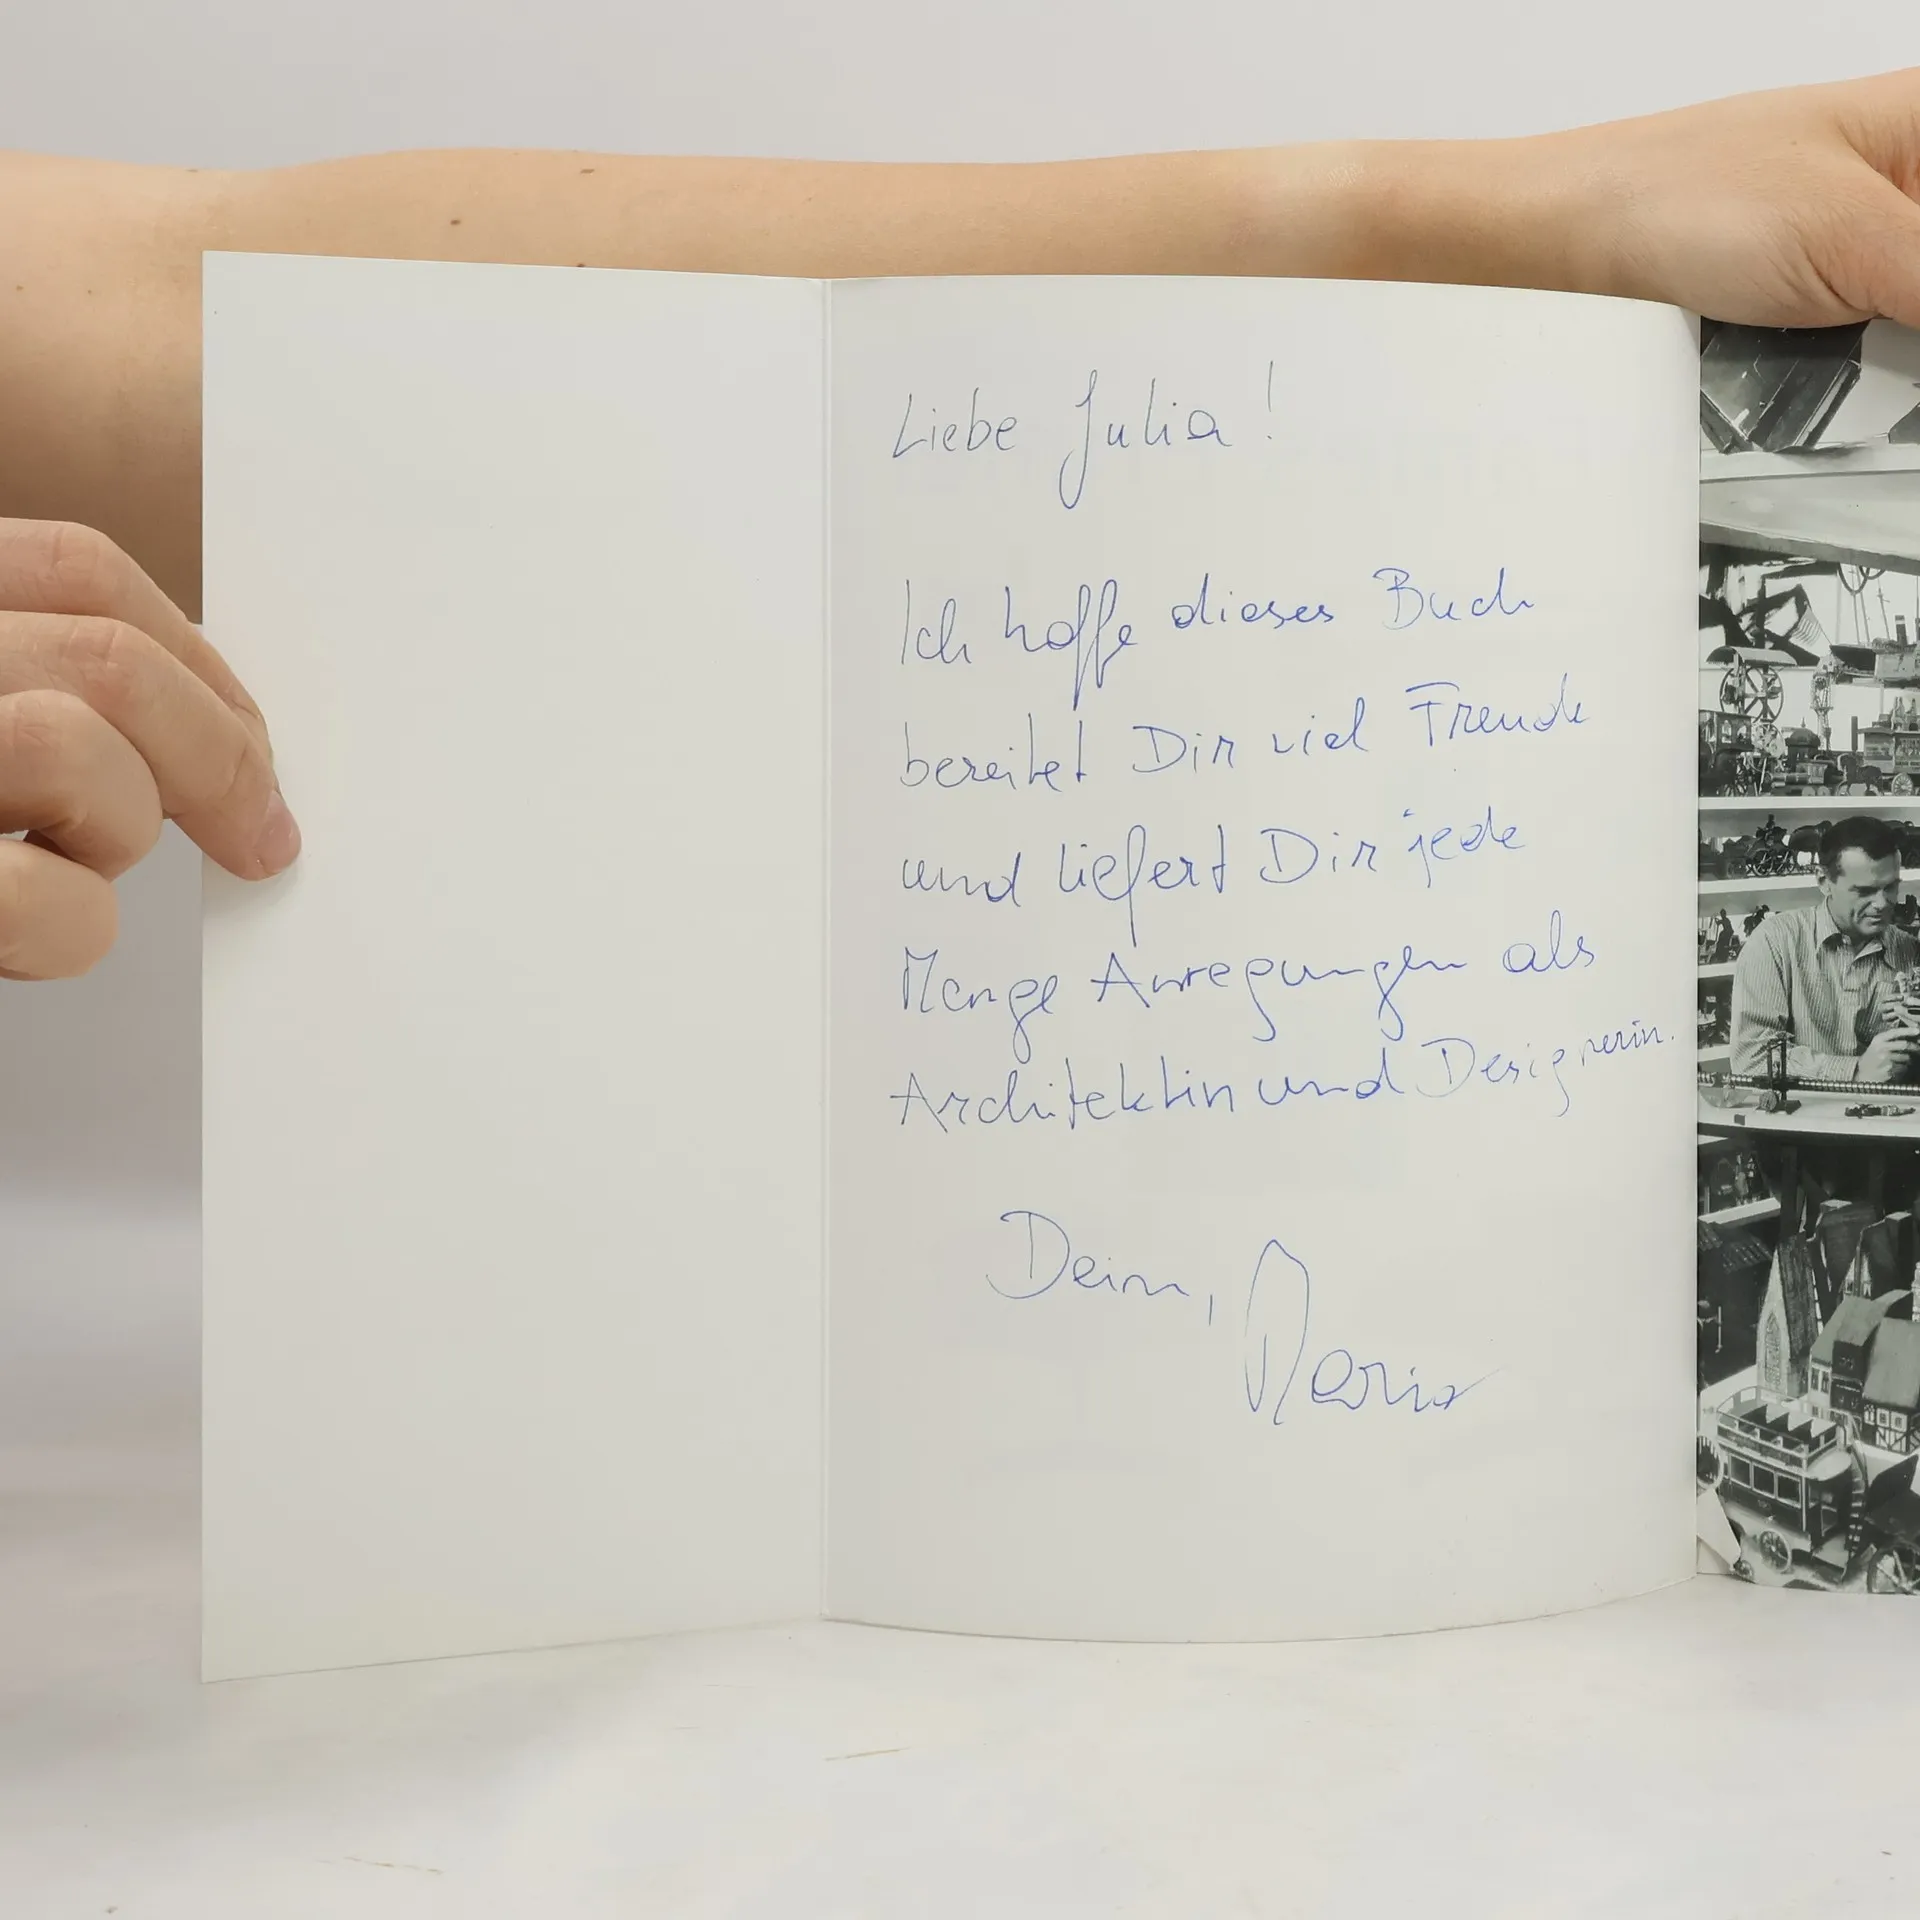 Liebe Julia!
Ich hoffe dieses Buch
bereitet Dir viel Freude
und liefert Dir jede
Menge Anregungen als
Architektin und Designerin.
Dein, Mario